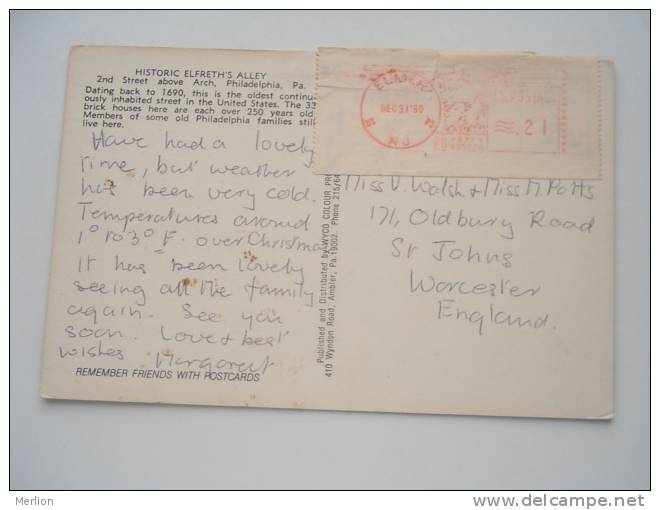 HISTORIC ELFRETH'S ALLEY
2nd Street above Arch, Philadelphia, Pa.
Dating back to 1690, this is the oldest continu-
ously inhabited street in the United States. The 33
brick houses here are each over 250 years old
Members of some old Philadelphia families still
live here.
Have had a lovely
time, but weather
has been very cold.
Temperatures around
1° to 3° F. over Christmas
It has been lovely
seeing all the family
again. See you
soon. Love & best
wishes Margaret
REMEMBER FRIENDS WITH POSTCARDS
Published and Distributed by WYCO COLOUR PRO
410 Wyndon Road, Ambler, Pa. 19002. Phone 215/64
DEC 31 '80
NJ
.21
Miss V. Walsh & Miss M. Potts
171, Oldbury Road
St Johns
Worcester
England.
Merlion
www.delcampe.net